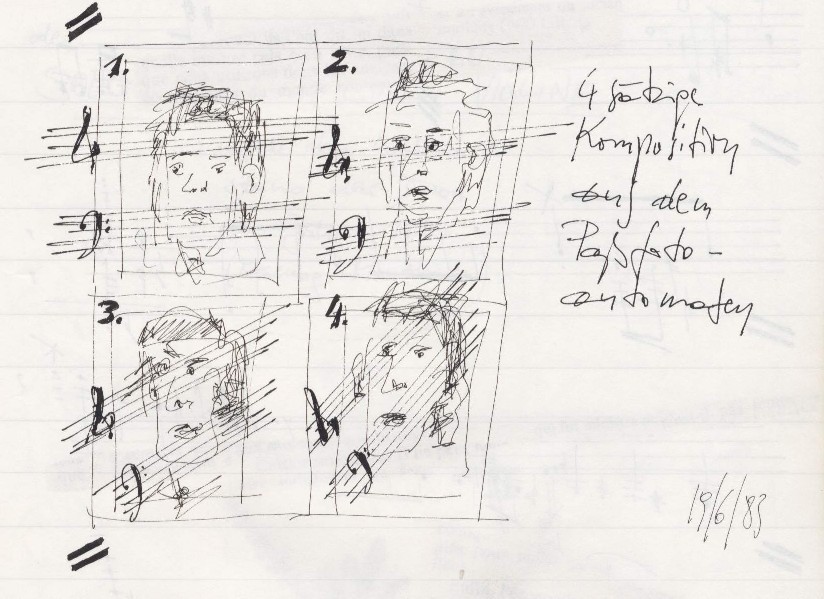 1.
2.
3.
4.
4 sätzige
Komposition
aus dem
Paßfoto-
automaten
19/6/83